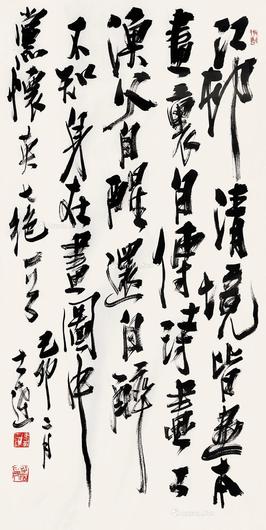 江邨清境皆畫本
畫裏自傳詩畫工
漁父自醒還自醉
不知身在畫圖中
黨懷英七绝一首
己卯二月